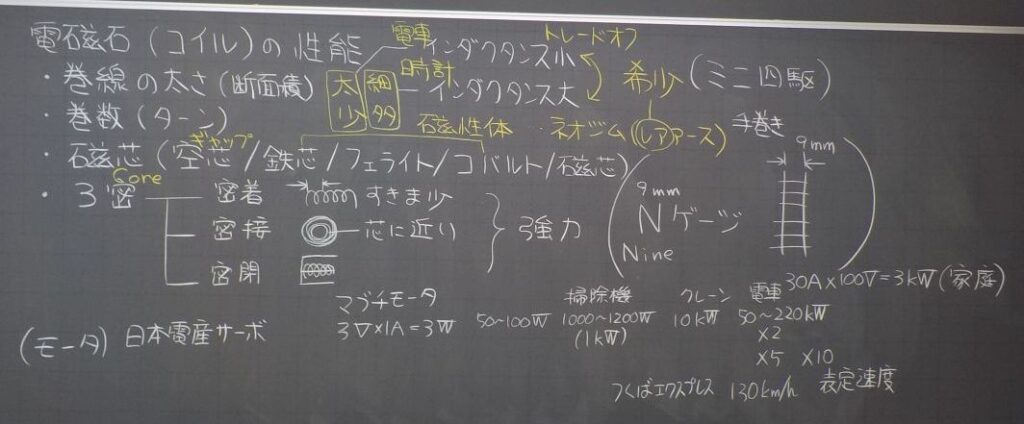 電磁石(コイル)の性能 電車 インダクタンス小 トレードオフ
・巻線の太さ(断面積) 太 細 時計 インダクタンス大 希少(ミニ四駆)
・巻数(ターン) 少 多 磁性体 ネオジム(レアアース) 手巻き
ギャップ 9mm
・磁芯(空芯/鉄芯/フェライト/コバルト/磁芯)
Core
・3密 密着 すきま少 9mm
密接 芯に近い 強力 Nゲージ
密閉 Nine
マブチモータ 掃除機 クレーン 電車 30A×100V=3kW(家庭)
(モータ) 日本電産サーボ 3V×1A=3W 50~100W 1000~1200W 10kW 50~220kW
(1kW) ×2
×5 ×10
つくばエクスプレス 130km/h 表定速度